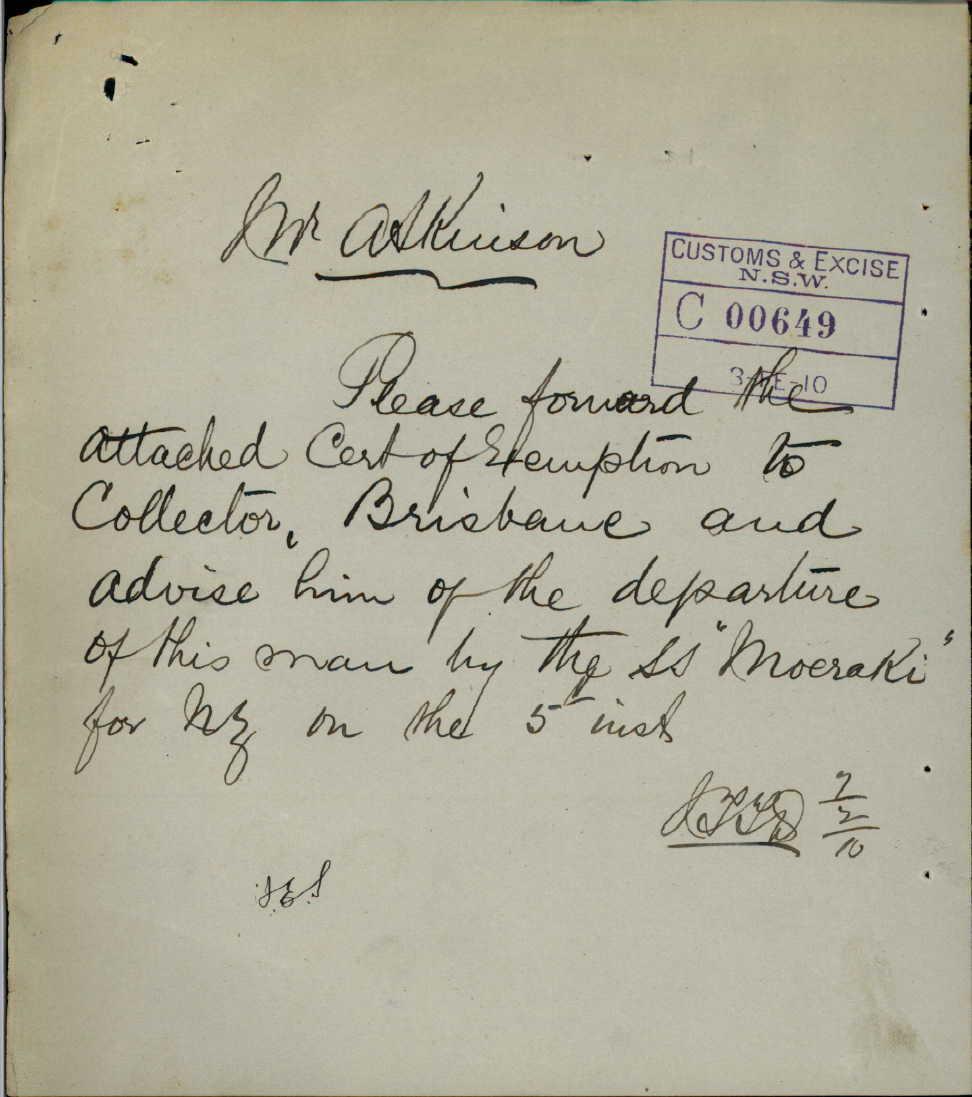 Mr Atkinson
CUSTOMS & EXCISE
N.S.W.
C 00649
Please forward the
attached Cert of Exemption to
Collector, Brisbane and
advise him of the departure
of this man by the SS "Moeraki"
for NZ on the 5 inst
7/2/10